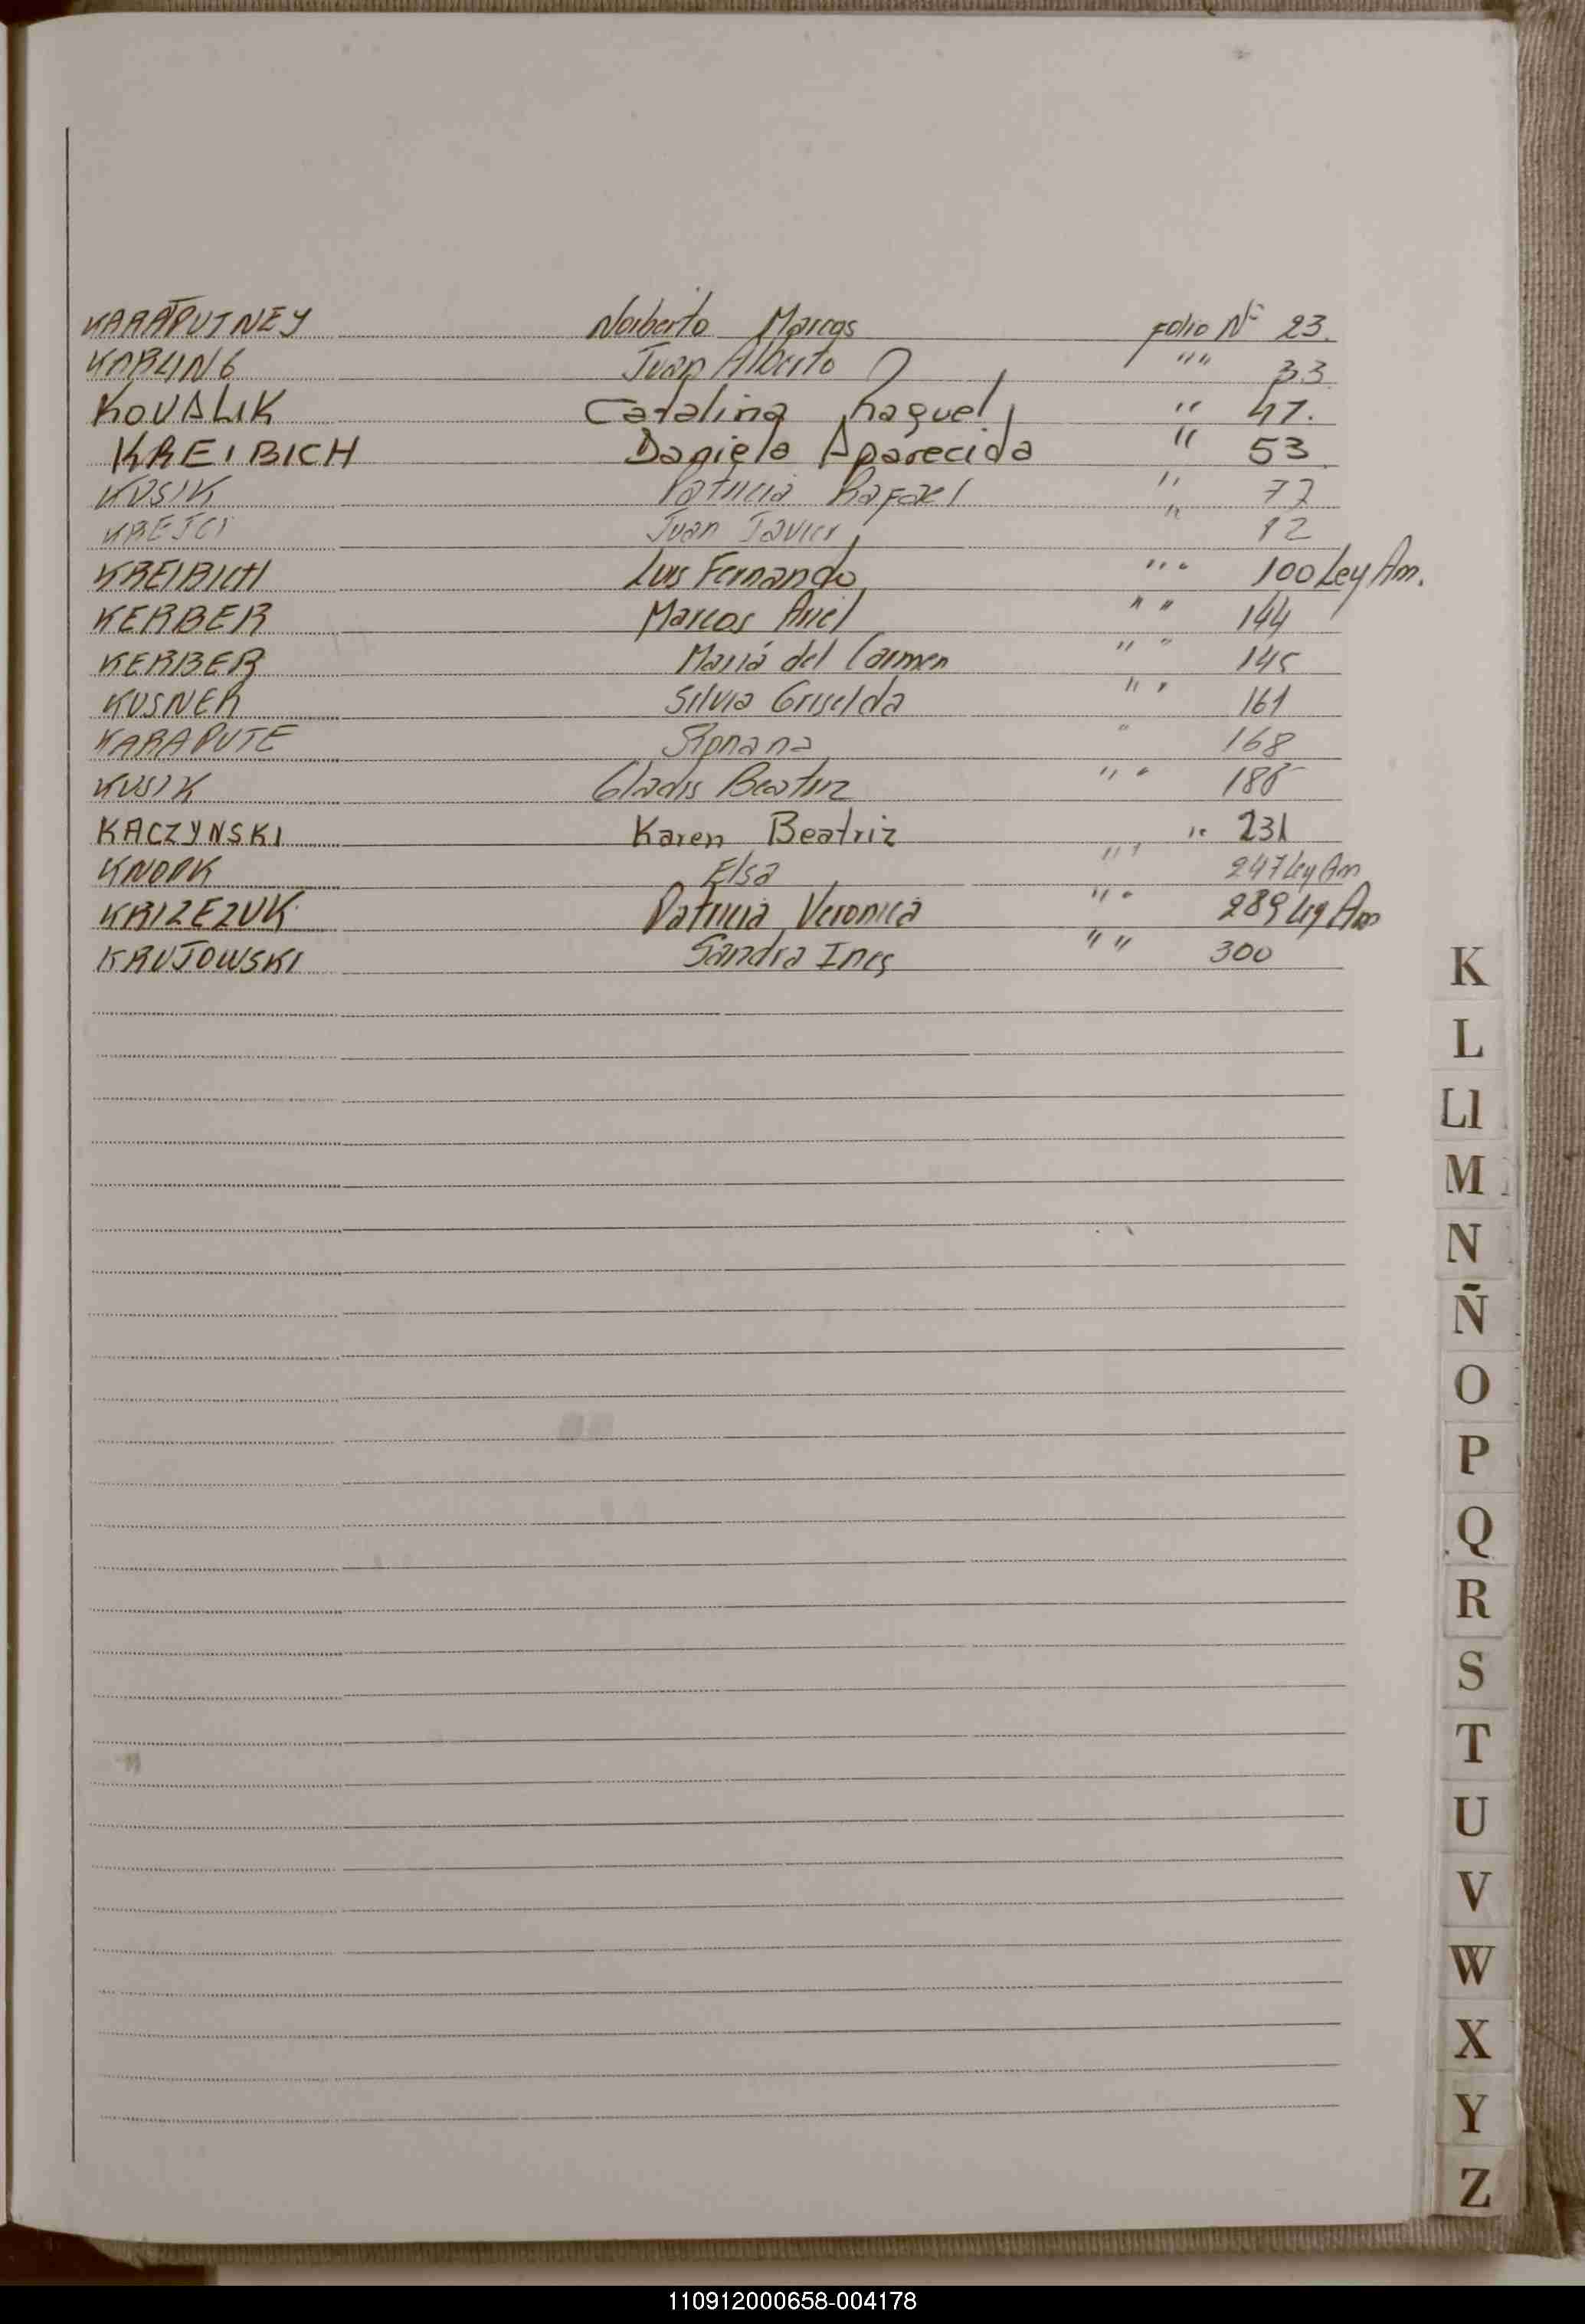 KARAPUTNEY Norberto Marcos Folio Nº 23.
KARLING Juan Alberto "" 33
KOVALIK Catalina Raquel " 47.
KREIBICH Daniela Aparecida " 53
KUSIK Patricia Rafael " 77
KREJCI Juan Javier " 12
KREIBICH Luis Fernando "" 100 Ley Am.
KERBER Marcos Ariel " " 144
KERBER María del Carmen " " 145
KUSNER Silvia Griselda " " 161
KARAPUTE " 168
KUSIK Gladis Beatriz " "
KACZYNSKI Karen Beatriz " 231
KNOPK Elsa "" 247 Ley Am
KRIZEZUK Patricia Veronica " " 289 Ley Am
KRUJOWSKI Sandra Ines " " 300
K
L
Ll
M
N
Ñ
O
P
Q
R
S
T
U
V
W
X
Y
Z
110912000658-004178